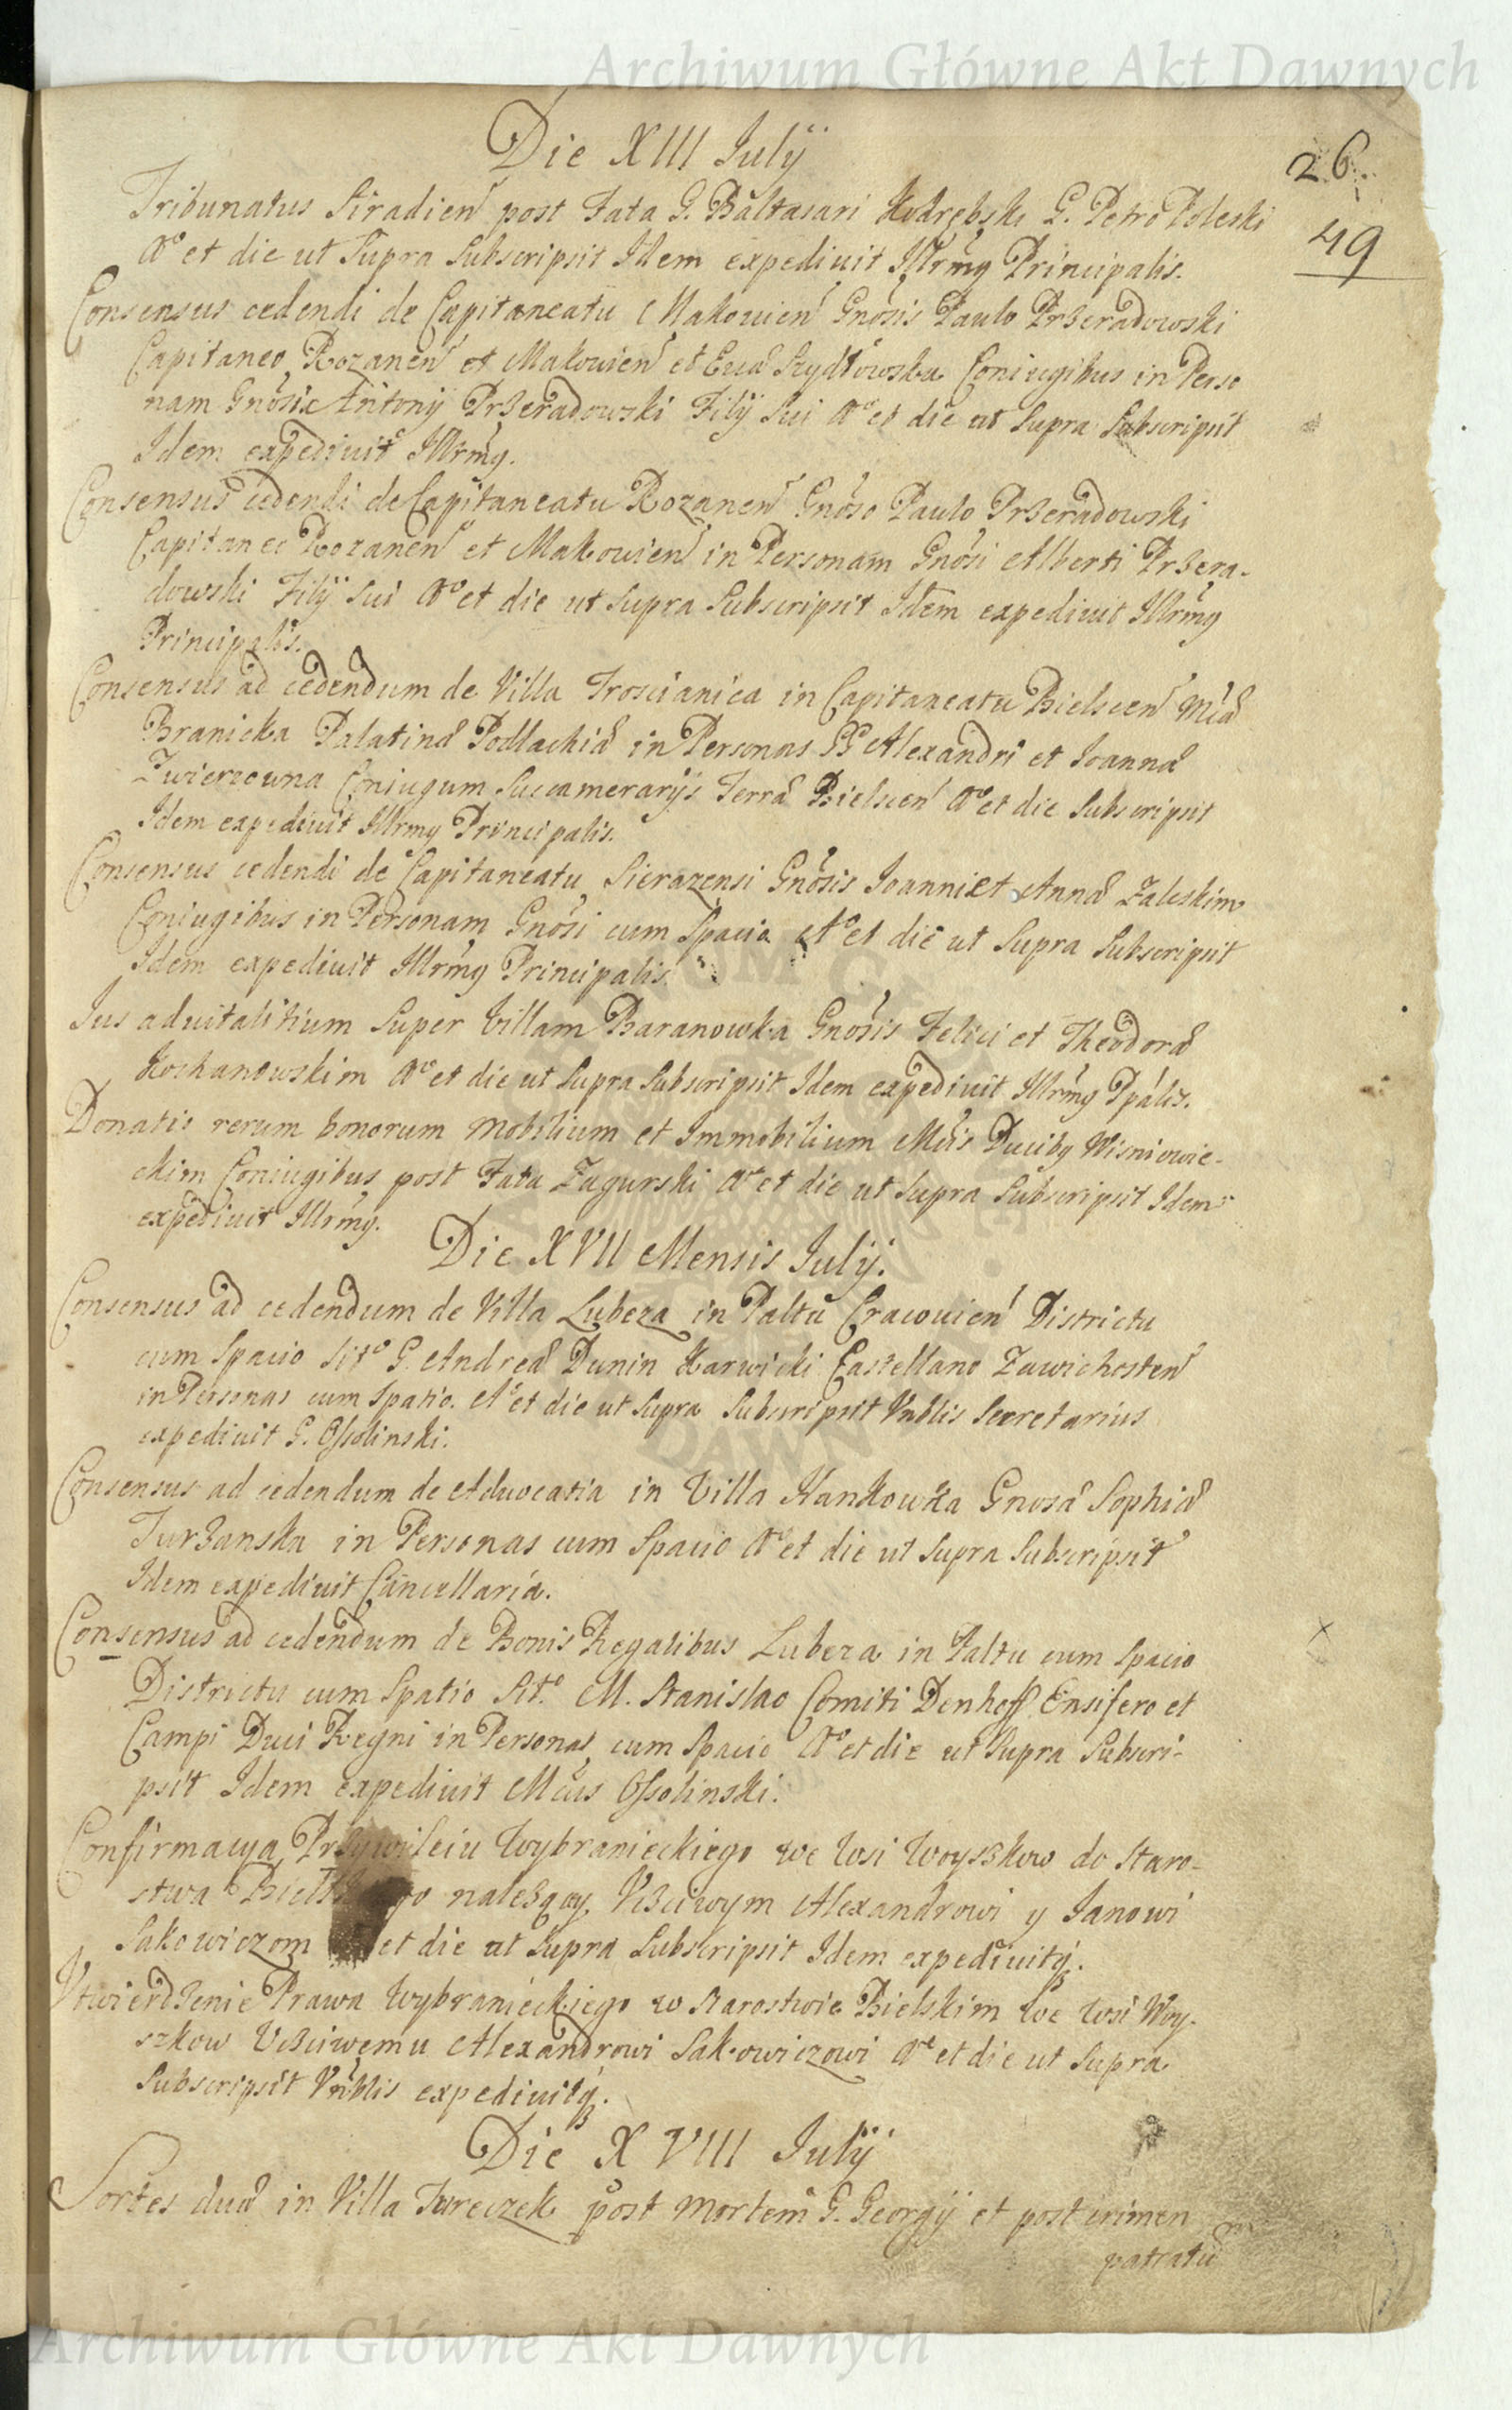 Archiwum Główne Akt Dawnych
Die XIII Julÿ
26.
49
Tribunatus Siradien post Fata G. Baltasari Kodrębski G. Petro Poleski
Ao et die ut Supra Subscripsit Idem expedivit Illrmg Principalis.
Consensus cedendi de Capitaneatu Makovien Gnosis Paulo Przeradowski
Capitaneo Rozanen et Makovien et Eva Szydłowska Coniugibus in Perso
nam Gnosi Antonÿ Przeradowski Filÿ Sui Ao et die ut Supra Subscripsit
Idem expedivit Illrmg.
Consensus cedendi de Capitaneatu Rozanen Gnoso Paulo Przeradowski
Capitaneo Rozanen et Makovien in Personam Gnosi Alberti Przera-
dowski Filÿ Sui Ao et die ut Supra Subscripsit Idem expedivit Illrmg
Principalis.
Consensus ad cedendum de Villa Troscianica in Capitaneatu Bielscen Mca
Branicka Palatina Podlachia in Personas GG Alexandri et Joanna
Zwierzowna Coniugum Succamerarÿs Terra Bielscen Ao et die Subscripsit
Idem expedivit Illrmg Principalis.
Consensus cedendi de Capitaneatu Sierazensi Gnosis Joanni et Anna Zaleskim
Coniugibus in Personam Gnosi cum Spacio Ao et die ut Supra Subscripsit
Idem expedivit Illrmg Principalis.
Jus advitalitium Super Villam Baranowka Gnosis Felici et Theodora
Kochanowskim Ao et die ut Supra Subscripsit Idem expedivit Illrmg Ppalis.
Donatio rerum bonorum mobilium et Immobilium Mcis Ducibg Wisniowie-
ckim Coniugibus post Fata Zagurski Ao et die ut Supra Subscripsit Idem
expedivit Illrmg.
Die XVII Mensis Julÿ.
Consensus ad cedendum de Villa Lubcza in Paltu Cracovien Districtu
cum Spacio Sito G. Andrea Dunin Karwicki Castellano Zawichosten
in Personas cum Spatio. Ao et die ut Supra Subscripsit Vnblis Secretarius
expedivit G. Ossolinski.
Consensus ad cedendum de Advocatia in Villa Hankowka Gnosa Sophia
Turzanska in Personas cum Spacio Ao et die ut Supra Subscripsit
Idem expedivit Cancellaria.
Consensus ad cedendum de Bonis Regalibus Lubcza in Paltu cum Spacio
Districtu cum Spatio Sito. M. Stanislao Comiti Denhoff Ensifero et
Campi Duci Regni in Personas cum Spacio Ao et die ut Supra Subscri-
psit Idem expedivit Mcus Ossolinski.
Confirmacya Przywileiu Wybranieckiego we Wsi Woyszkow do Staro-
stwa Bielskiego nalezący Vczciwym Alexandrowi y Janowi
Sakowiczom et die ut Supra Subscripsit Idem expedivitq.
Vtwierdzenie Prawa Wybranieckiego w Starostwie Bielskim we Wsi Woy-
szkow Vczciwemu Alexandrowi Sakowiczowi Ao et die ut Supra
Subscripsit Vnblis expedivitq.
Die XVIII Julÿ
Sortes dua in Villa Tureczek post mortem G. Georgÿ et post crimen
patratu
Archiwum Główne Akt Dawnych